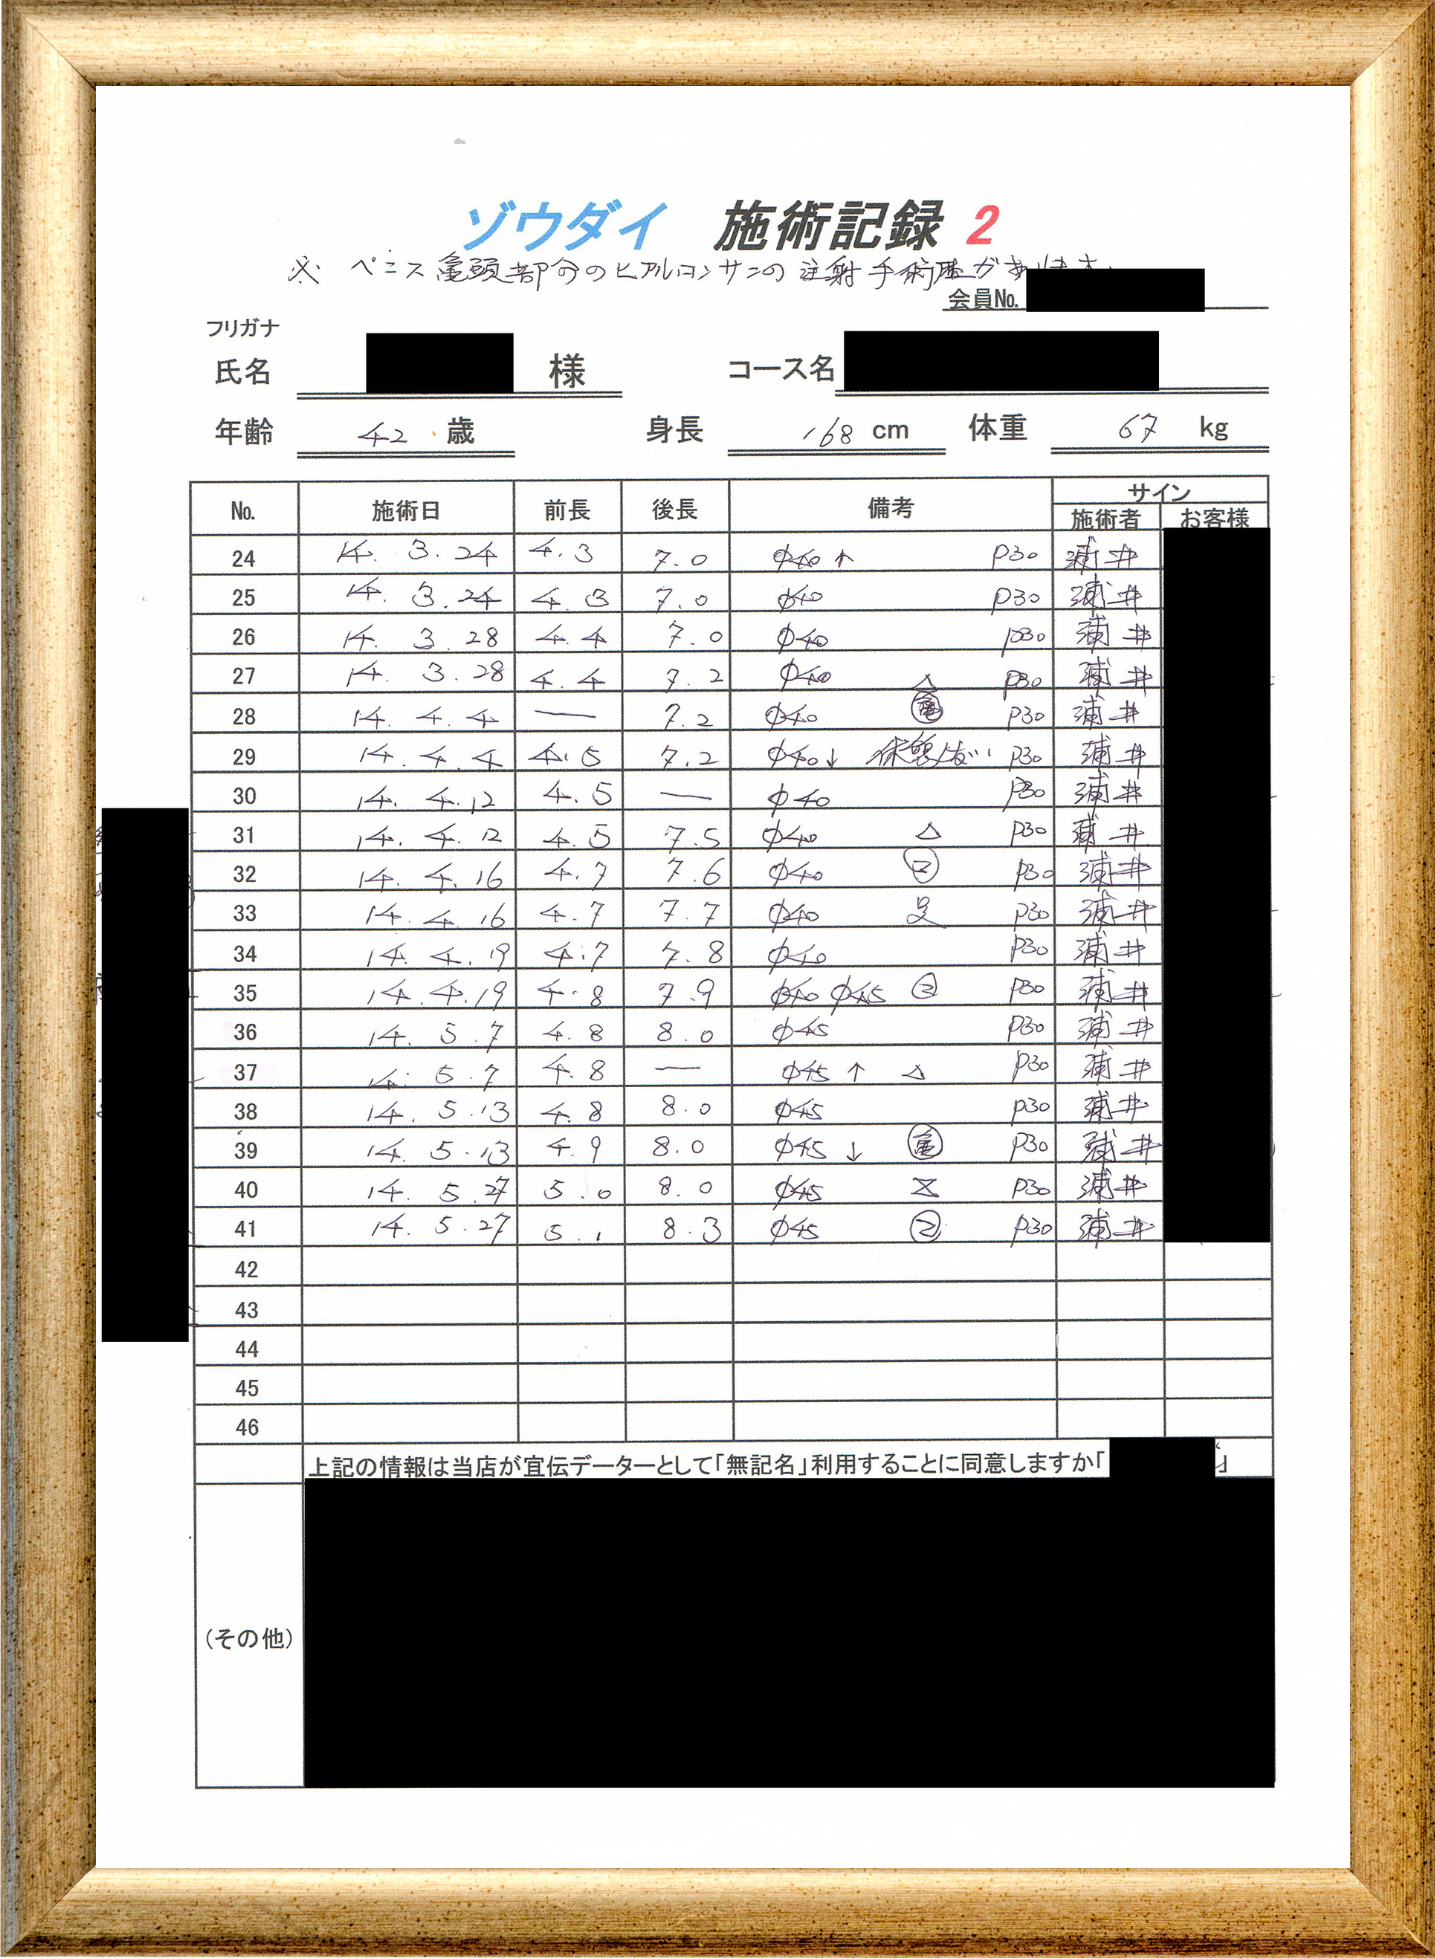 ゾウダイ 施術記録 2
※ ペニス亀頭部分のヒアルロンサンの注射手術歴があります
会員No.
フリガナ
氏名 様 コース名
年齢 42 歳 身長 168 cm 体重 67 kg
No. 施術日 前長 後長 備考 サイン
施術者 お客様
24 14. 3. 24 4.3 7.0 φ40↑ P30 浦井
25 14. 3. 24 4.3 7.0 φ40 P30 浦井
26 14. 3. 28 4.4 7.0 φ40 P30 浦井
27 14. 3. 28 4.4 7.2 φ40 △ P30 浦井
28 14. 4. 4 — 7.2 φ40 ㊀ P30 浦井
29 14. 4. 4 4.5 7.2 φ40↓ 休憩 P30 浦井
30 14. 4. 12 4.5 — φ40 P30 浦井
31 14. 4. 12 4.5 7.5 φ40 △ P30 浦井
32 14. 4. 16 4.7 7.6 φ40 P30 浦井
33 14. 4. 16 4.7 7.7 φ40 足 P30 浦井
34 14. 4. 19 4.7 7.8 φ40 P30 浦井
35 14. 4. 19 4.8 7.9 φ40 φ45 P30 浦井
36 14. 5. 7 4.8 8.0 φ45 P30 浦井
37 14. 5. 7 4.8 — φ45 ↑ △ P30 浦井
38 14. 5. 13 4.8 8.0 φ45 P30 浦井
39 14. 5. 13 4.9 8.0 φ45 ↓ P30 浦井
40 14. 5. 27 5.0 8.0 φ45 P30 浦井
41 14. 5. 27 5.1 8.3 φ45 P30 浦井
42
43
44
45
46
上記の情報は当店が宣伝データーとして「無記名」利用することに同意しますか「 」
(その他)